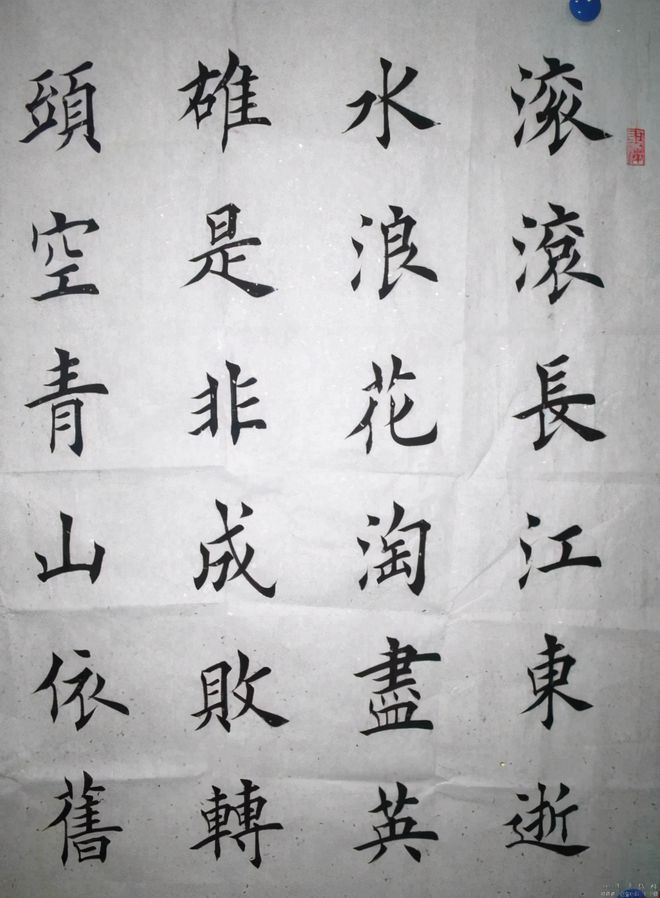 滚滾長江東逝
水浪花淘盡英
雄是非成敗轉
頭空青山依舊